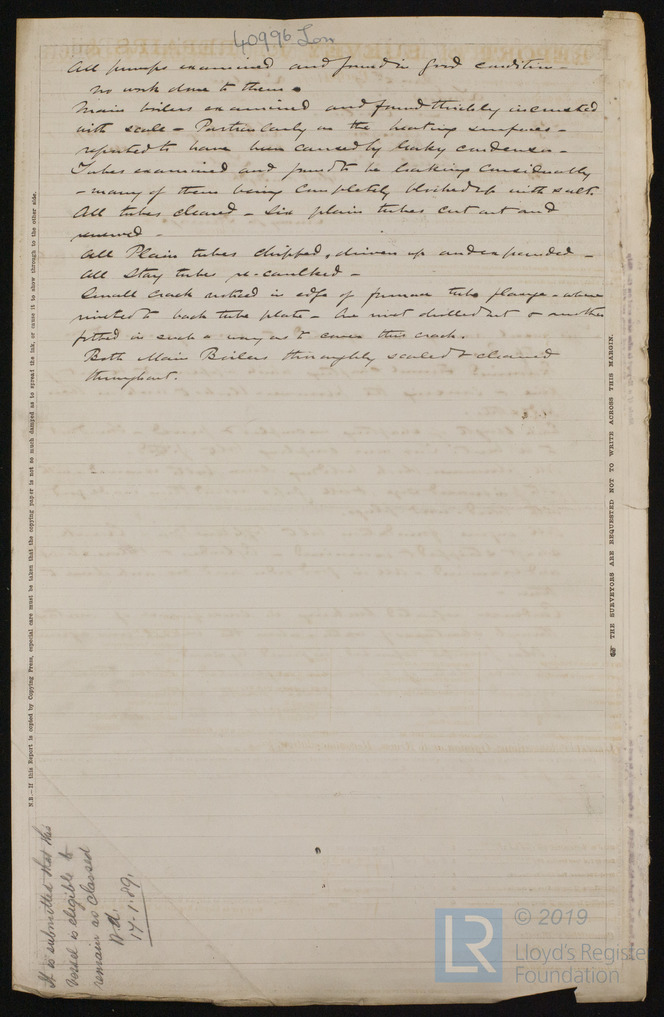 40996 Lon
All pumps examined and found in good condition -
no work done to them.
Main boilers examined and found thickly incrusted
with scale - Particularly on the heating surfaces -
reported to have been caused by leaky condenser -
Tubes examined and found to be leaking considerably
- many of them being completely blocked up with salt.
All tubes cleared - six plain tubes cut out and
renewed -
All Plain tubes chipped, driven up and expanded -
All Stay tubes re-caulked -
Small crack noticed in edge of furnace tube flange - where
riveted to back tube plate - One rivet drilled out & another
fitted in such a way as to cover this crack.
Both Main Boilers thoroughly scaled & cleaned
throughout.
N.B.—If this Report is copied by Copying Press, especial care must be taken that the copying paper is not so much damped as to spread the ink, or cause it to show through to the other side.
THE SURVEYORS ARE REQUESTED NOT TO WRITE ACROSS THIS MARGIN.
It is submitted that this
vessel is eligible to
remain as classed
17.1.89.
© 2019
LR
Lloyd's Register
Foundation